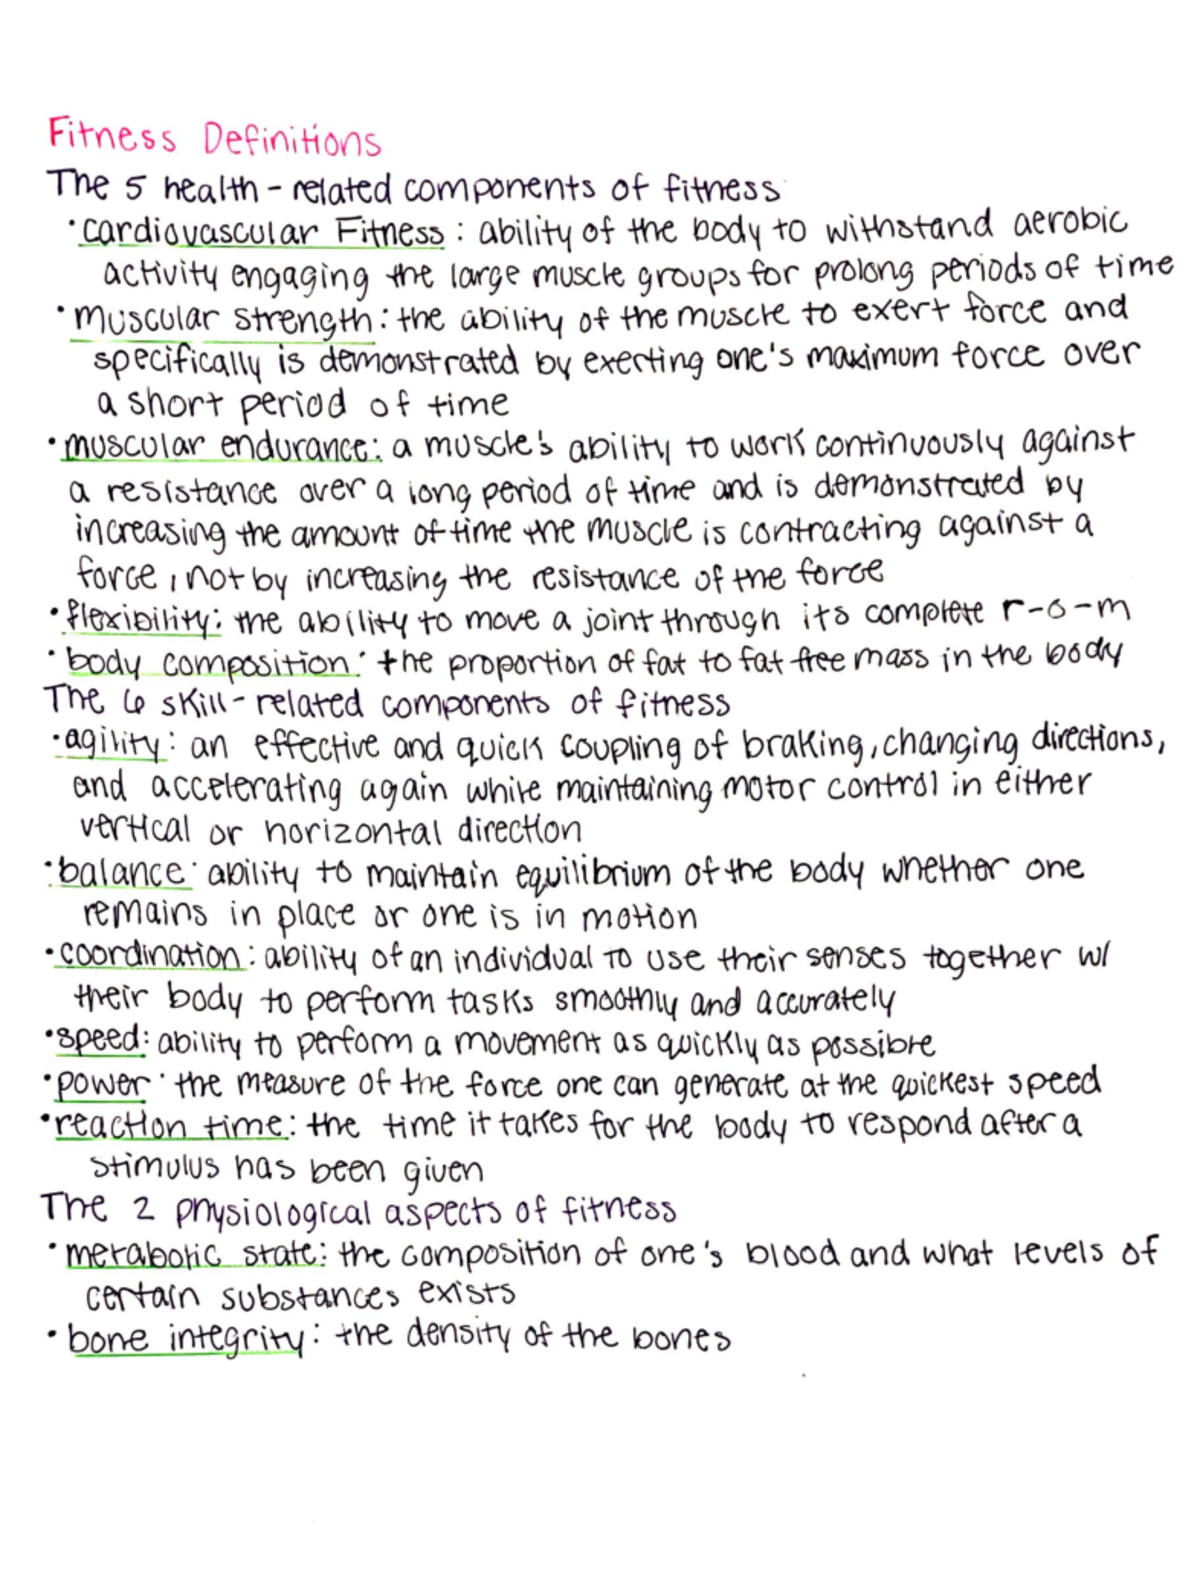 Fitness Definitions
The 5 health-related components of fitness
• cardiovascular Fitness: ability of the body to withstand aerobic
activity engaging the large muscle groups for prolong periods of time
• muscular strength: the ability of the muscle to exert force and
specifically is demonstrated by exerting one's maximum force over
a short period of time
• muscular endurance: a muscle's ability to work continuously against
a resistance over a long period of time and is demonstrated by
increasing the amount of time the muscle is contracting against a
force, not by increasing the resistance of the force
• flexibility: the ability to move a joint through its complete r-o-m
• body composition: the proportion of fat to fat free mass in the body
The 6 skill-related components of fitness
• agility: an effective and quick coupling of braking, changing directions,
and accelerating again while maintaining motor control in either
vertical or horizontal direction
• balance: ability to maintain equilibrium of the body whether one
remains in place or one is in motion
• coordination: ability of an individual to use their senses together w/
their body to perform tasks smoothly and accurately
• speed: ability to perform a movement as quickly as possible
• power: the measure of the force one can generate at the quickest speed
• reaction time: the time it takes for the body to respond after a
stimulus has been given
The 2 physiological aspects of fitness
• metabolic state: the composition of one's blood and what levels of
certain substances exists
• bone integrity: the density of the bones